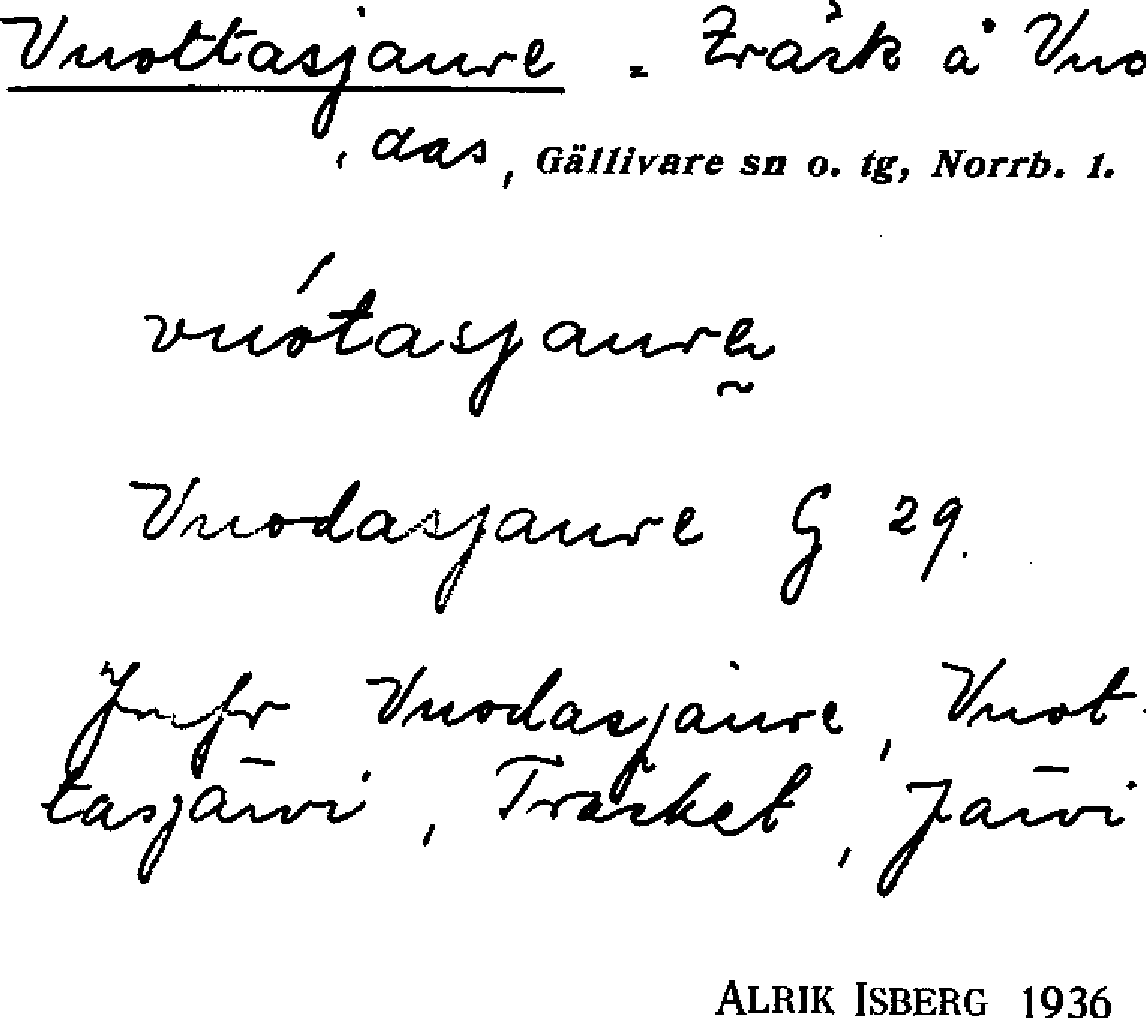 Vuottasjaure - Träsk å Vuo
, das, Gällivare sn o. tg, Norrb. l.
vuótasjaure
Vuodasjaure G 29.
Jmfr Vuodasjaure, Vuot-
tasjärvi, Träsket, Järvi
ALRIK ISBERG 1936